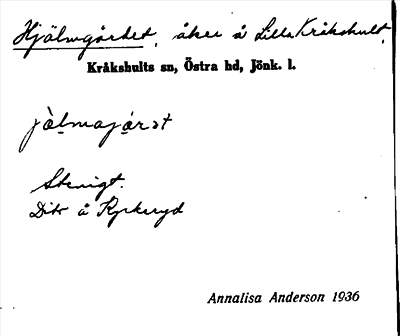 Hjälmgärdet, åker å Lilla Kråkshult,
Kråkshults sn, Östra hd, Jönk. l.
jàlmajárət
Stenigt.
Dito å Ryckeryd
Annalisa Anderson 1936